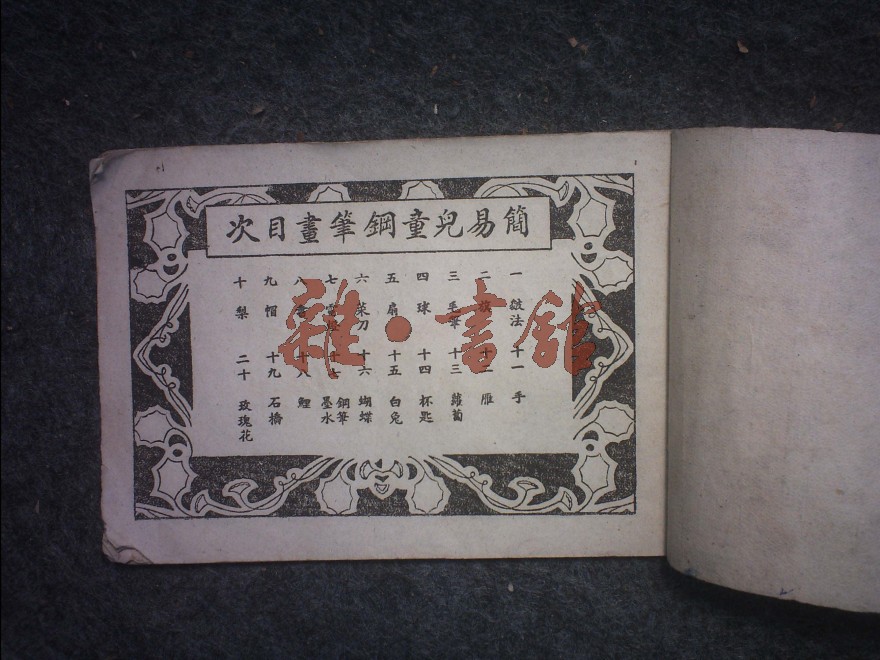 簡易兒童鋼筆畫目次
一 皴法 十一 手
二 旗 十二 雁
三 毛筆 十三 蘿蔔
四 球 十四 杯匙
五 扇 十五 白兔
六 菜刀 十六 蝴蝶
七 十七 鋼筆墨水
八 十八 鯉
九 帽 十九 石橋
十 梨 二十 玫瑰花
雜·書館